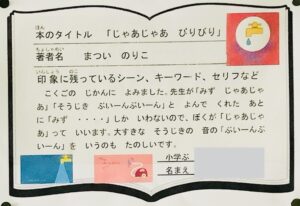 ほん
本のタイトル 「じゃあじゃあ びりびり」
ちょしゃめい
著者名 まつい のりこ
いんしょう のこ
印象に残っているシーン、キーワード、セリフなど
こくごの じかんに よみました。先生が「みず じゃあじゃ
あ」「そうじき ぶいーんぶいーん」と よんで くれた あと
に「みず ・・・・」しか いわないので、ぼくが「じゃあじゃ
あ」って いいます。大すきな そうじきの 音の「ぶいーんぶ
いーん」を いうのも たのしいです。
小学ぶ
名まえ